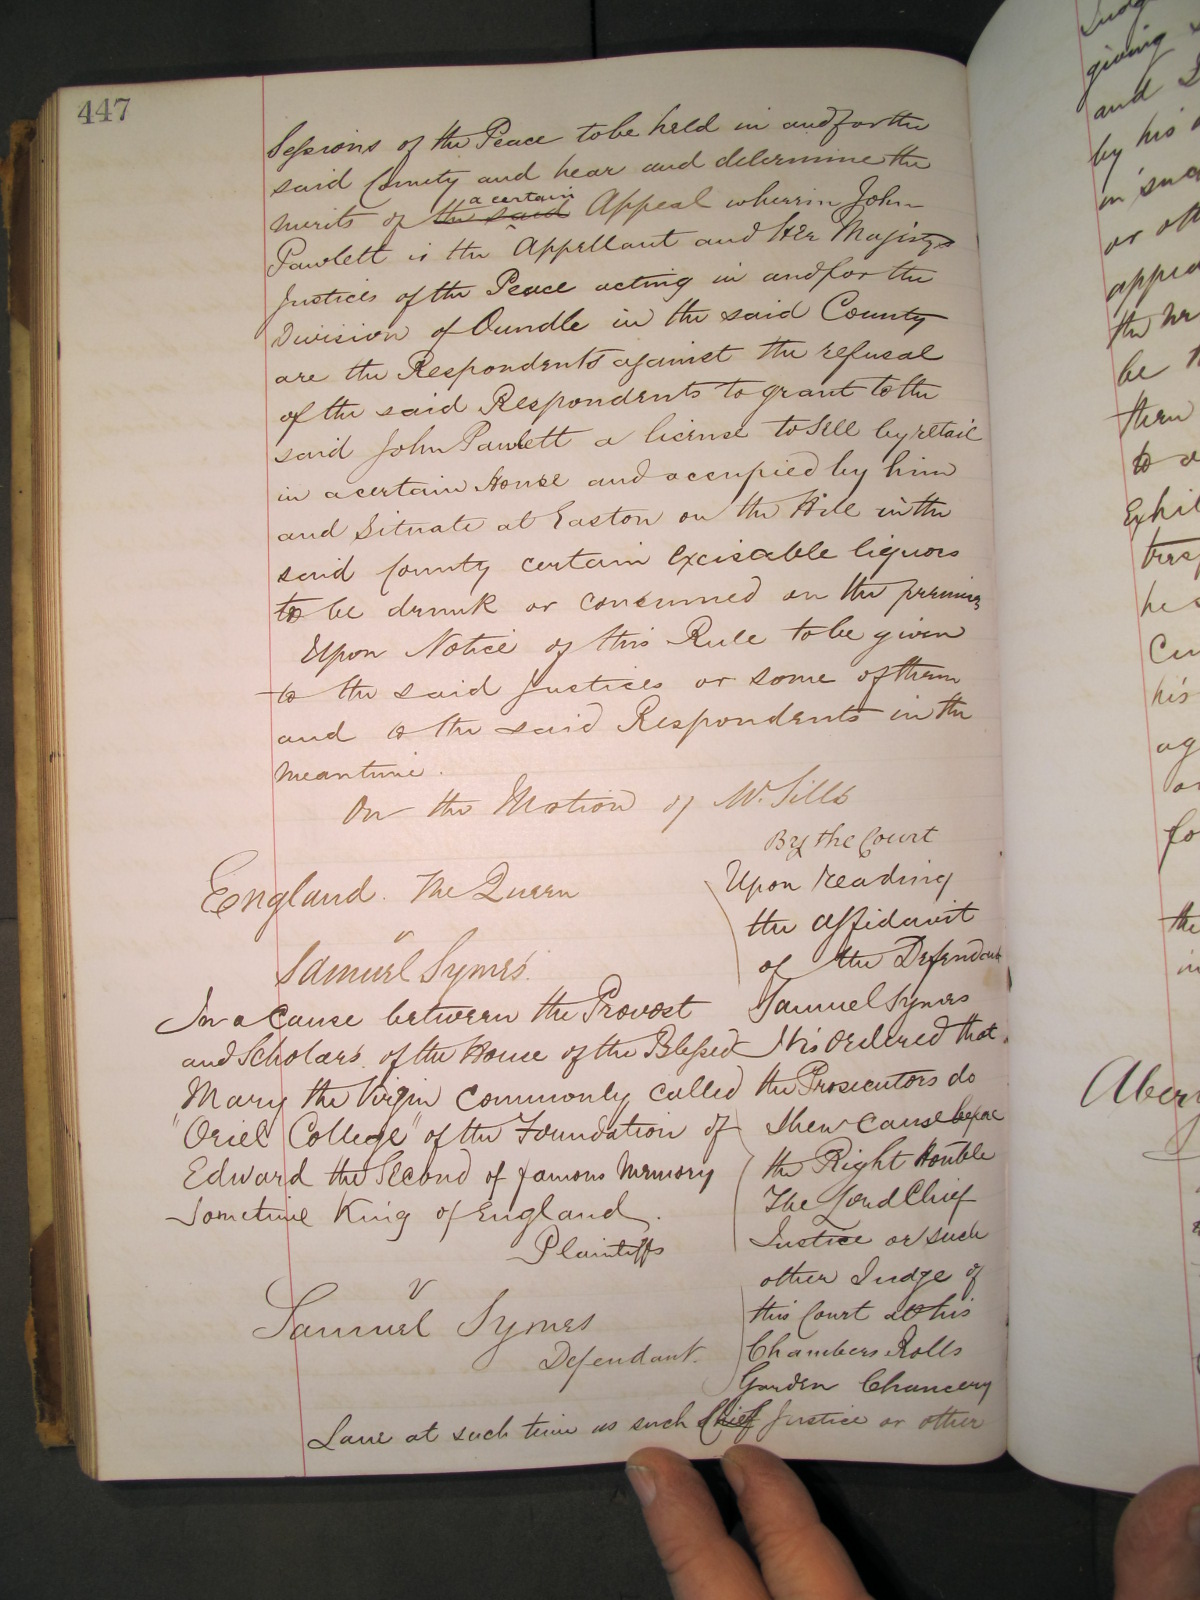 447
Sessions of the Peace to be held in and for the
said County and hear and determine the
a certain
merits of the said Appeal wherein John
Pawlett is the Appellant and Her Majestys
Justices of the Peace acting in and for the
Division of Oundle in the said County
are the Respondents against the refusal
of the said Respondents to grant to the
said John Pawlett a license to sell by retail
in a certain House and occupied by him
and Situate at Easton on the Hill in the
said County certain Excisable liquors
to be drunk or consumed on the premises
Upon Notice of this Rule to be given
to the said Justices or some of them
and to the said Respondents in the
meantime.
On the Motion of Mr. Sills
By the Court
England. The Queen
v
Samuel Symes.
In a Cause between the Provost
and Scholars of the House of the Blessed
Mary the Virgin Commonly called
"Oriel College" of the Foundation of
Edward the Second of famous Memory
Sometime King of England.
Plaintiffs
v
Samuel Symes
Defendant.
Upon reading
the Affidavit
of the Defendant
Samuel Symes
It is Ordered that
the Prosecutors do
shew cause before
the Right Honble
The Lord Chief
Justice or such
other Judge of
this Court at his
Chambers Rolls
Garden Chancery
Lane at such time as such Chief Justice or other
giving
and
by his
in such
the
be
them
to
he
his
the
in